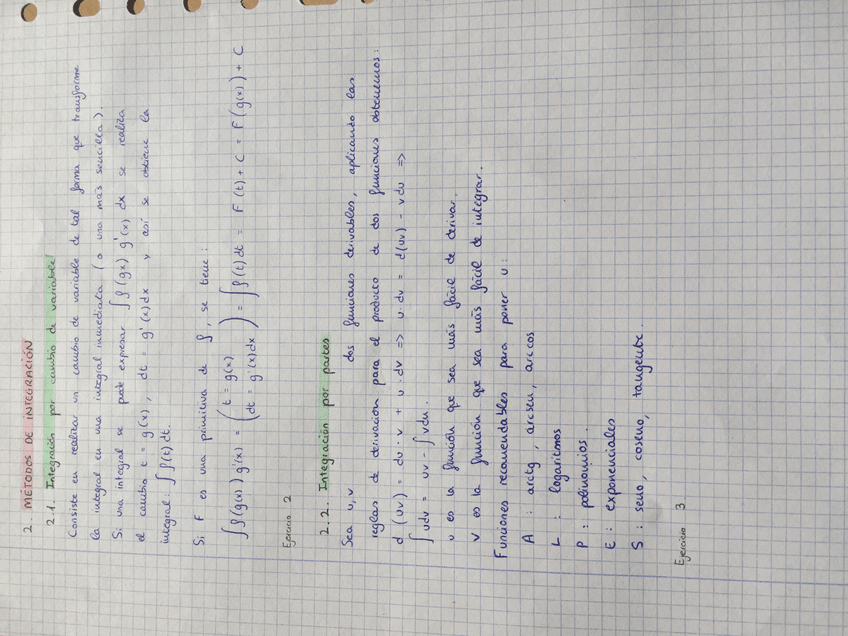 2. MÉTODOS DE INTEGRACIÓN
2.1. Integración por cambio de variable
Consiste en realizar un cambio de variable de tal forma que transforme
la integral en una integral inmediata (o una más sencilla).
Si una integral se puede expresar ∫ f(gx) g'(x) dx se realiza
el cambio t = g(x), dt = g'(x)dx y así se obtiene la
integral: ∫ f(t) dt.
Si F es una primitiva de f, se tiene:
∫ f(g(x)) g'(x) = ( t = g(x) dt = g'(x)dx ) = ∫ f(t) dt = F(t) + C = F(g(x)) + C
Ejercicio 2
2.2. Integración por partes
Sea u, v dos funciones derivables, aplicando las
reglas de derivación para el producto de dos funciones obtenemos:
d(uv) = du · v + u · dv => u · dv = d(uv) - vdu =>
∫ udv = uv - ∫ vdu.
u es la función que sea más fácil de derivar.
v es la función que sea más fácil de integrar.
Funciones recomendables para poner u:
A : arctg, arcsen, arccos
L : logaritmos
P : polinomios.
E : exponenciales
S : seno, coseno, tangente.
Ejercicio 3